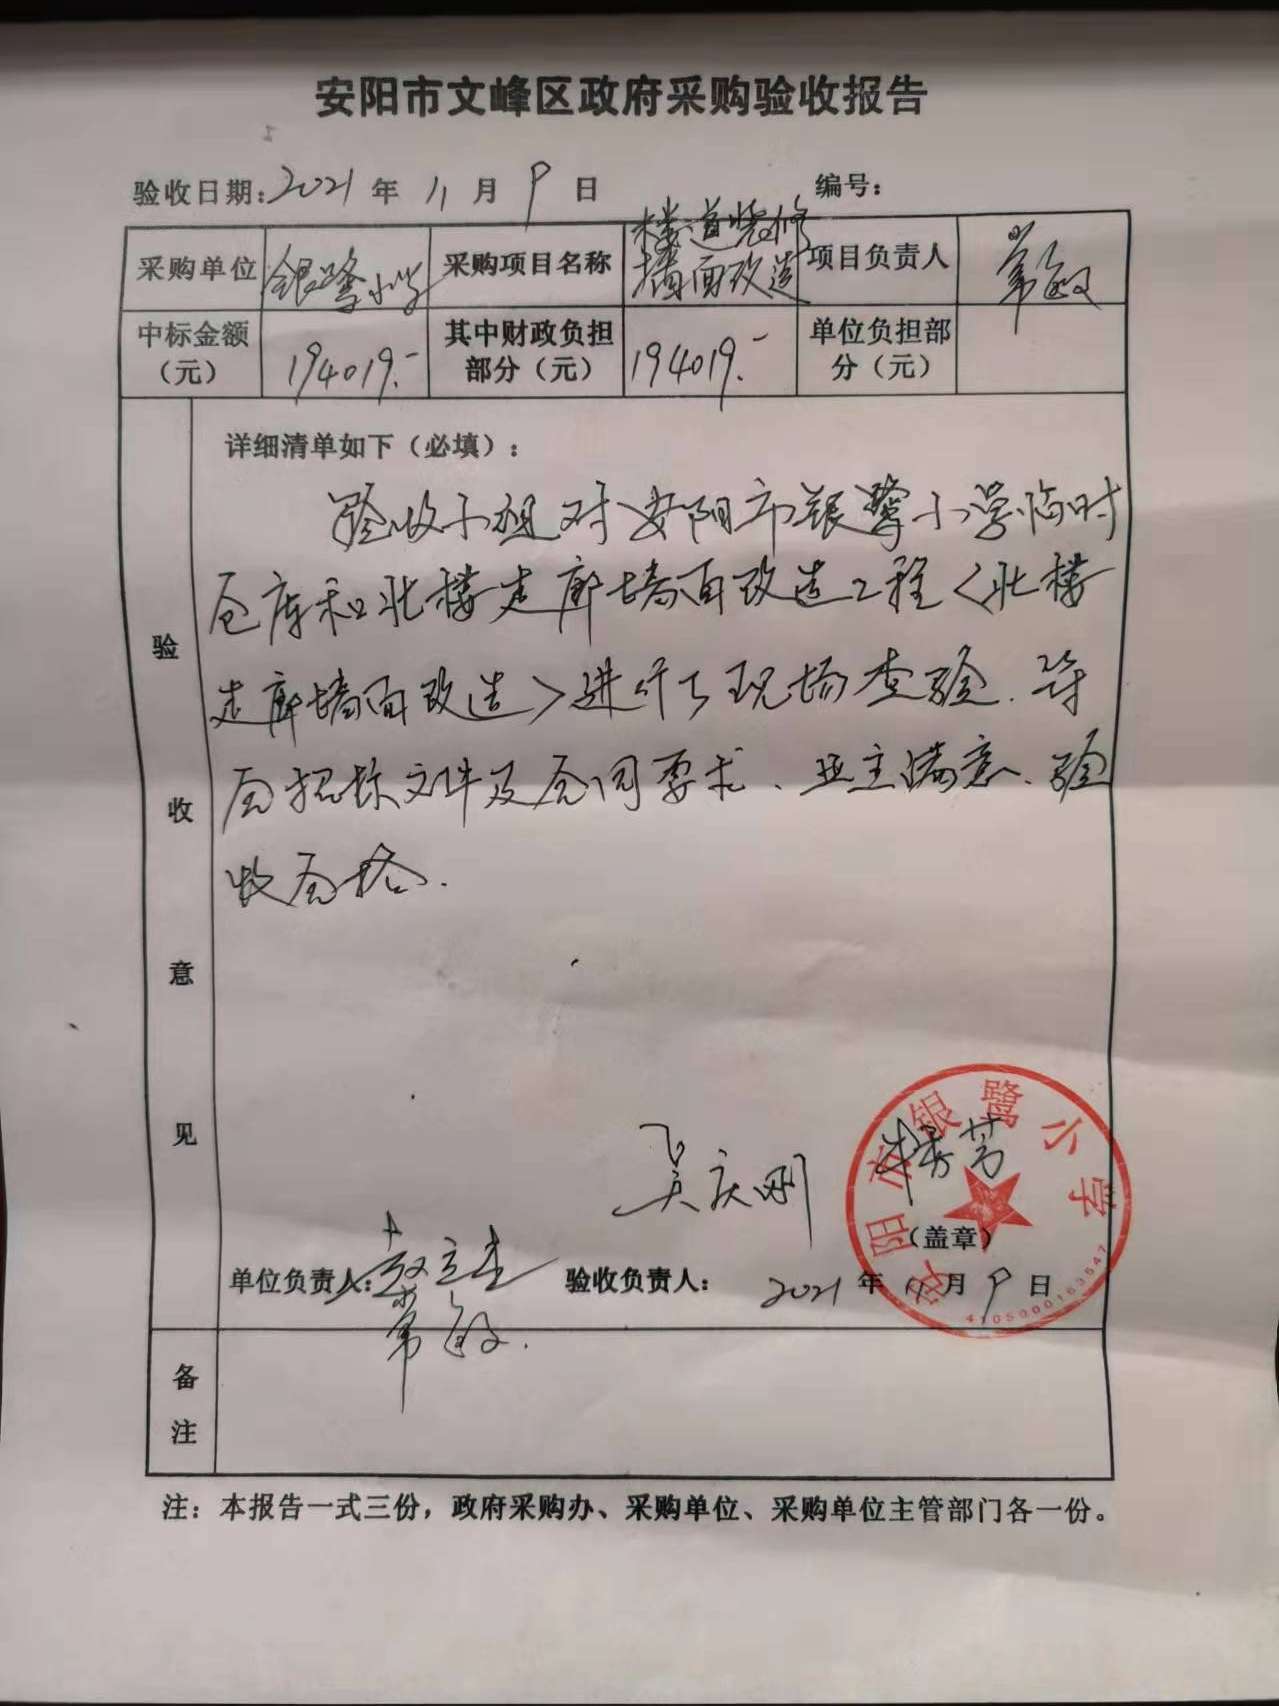 安阳市文峰区政府采购验收报告
验收日期：2021年11月9日 编号：
采购单位 银鹭小学 采购项目名称 楼道装修墙面改造 项目负责人 常敏
中标金额（元） 194019.- 其中财政负担部分（元） 194019.- 单位负担部分（元）
验收意见
详细清单如下（必填）：
验收小组对安阳市银鹭小学临时
仓库和北楼走廊墙面改造工程<北楼
走廊墙面改造>进行了现场查验.符
合招标文件及合同要求、业主满意、验
收合格.
吴庆刚
安阳市银鹭小学
（盖章）
单位负责人： 验收负责人： 2021年11月9日
常敏.
4105000163547
备注
注：本报告一式三份，政府采购办、采购单位、采购单位主管部门各一份。